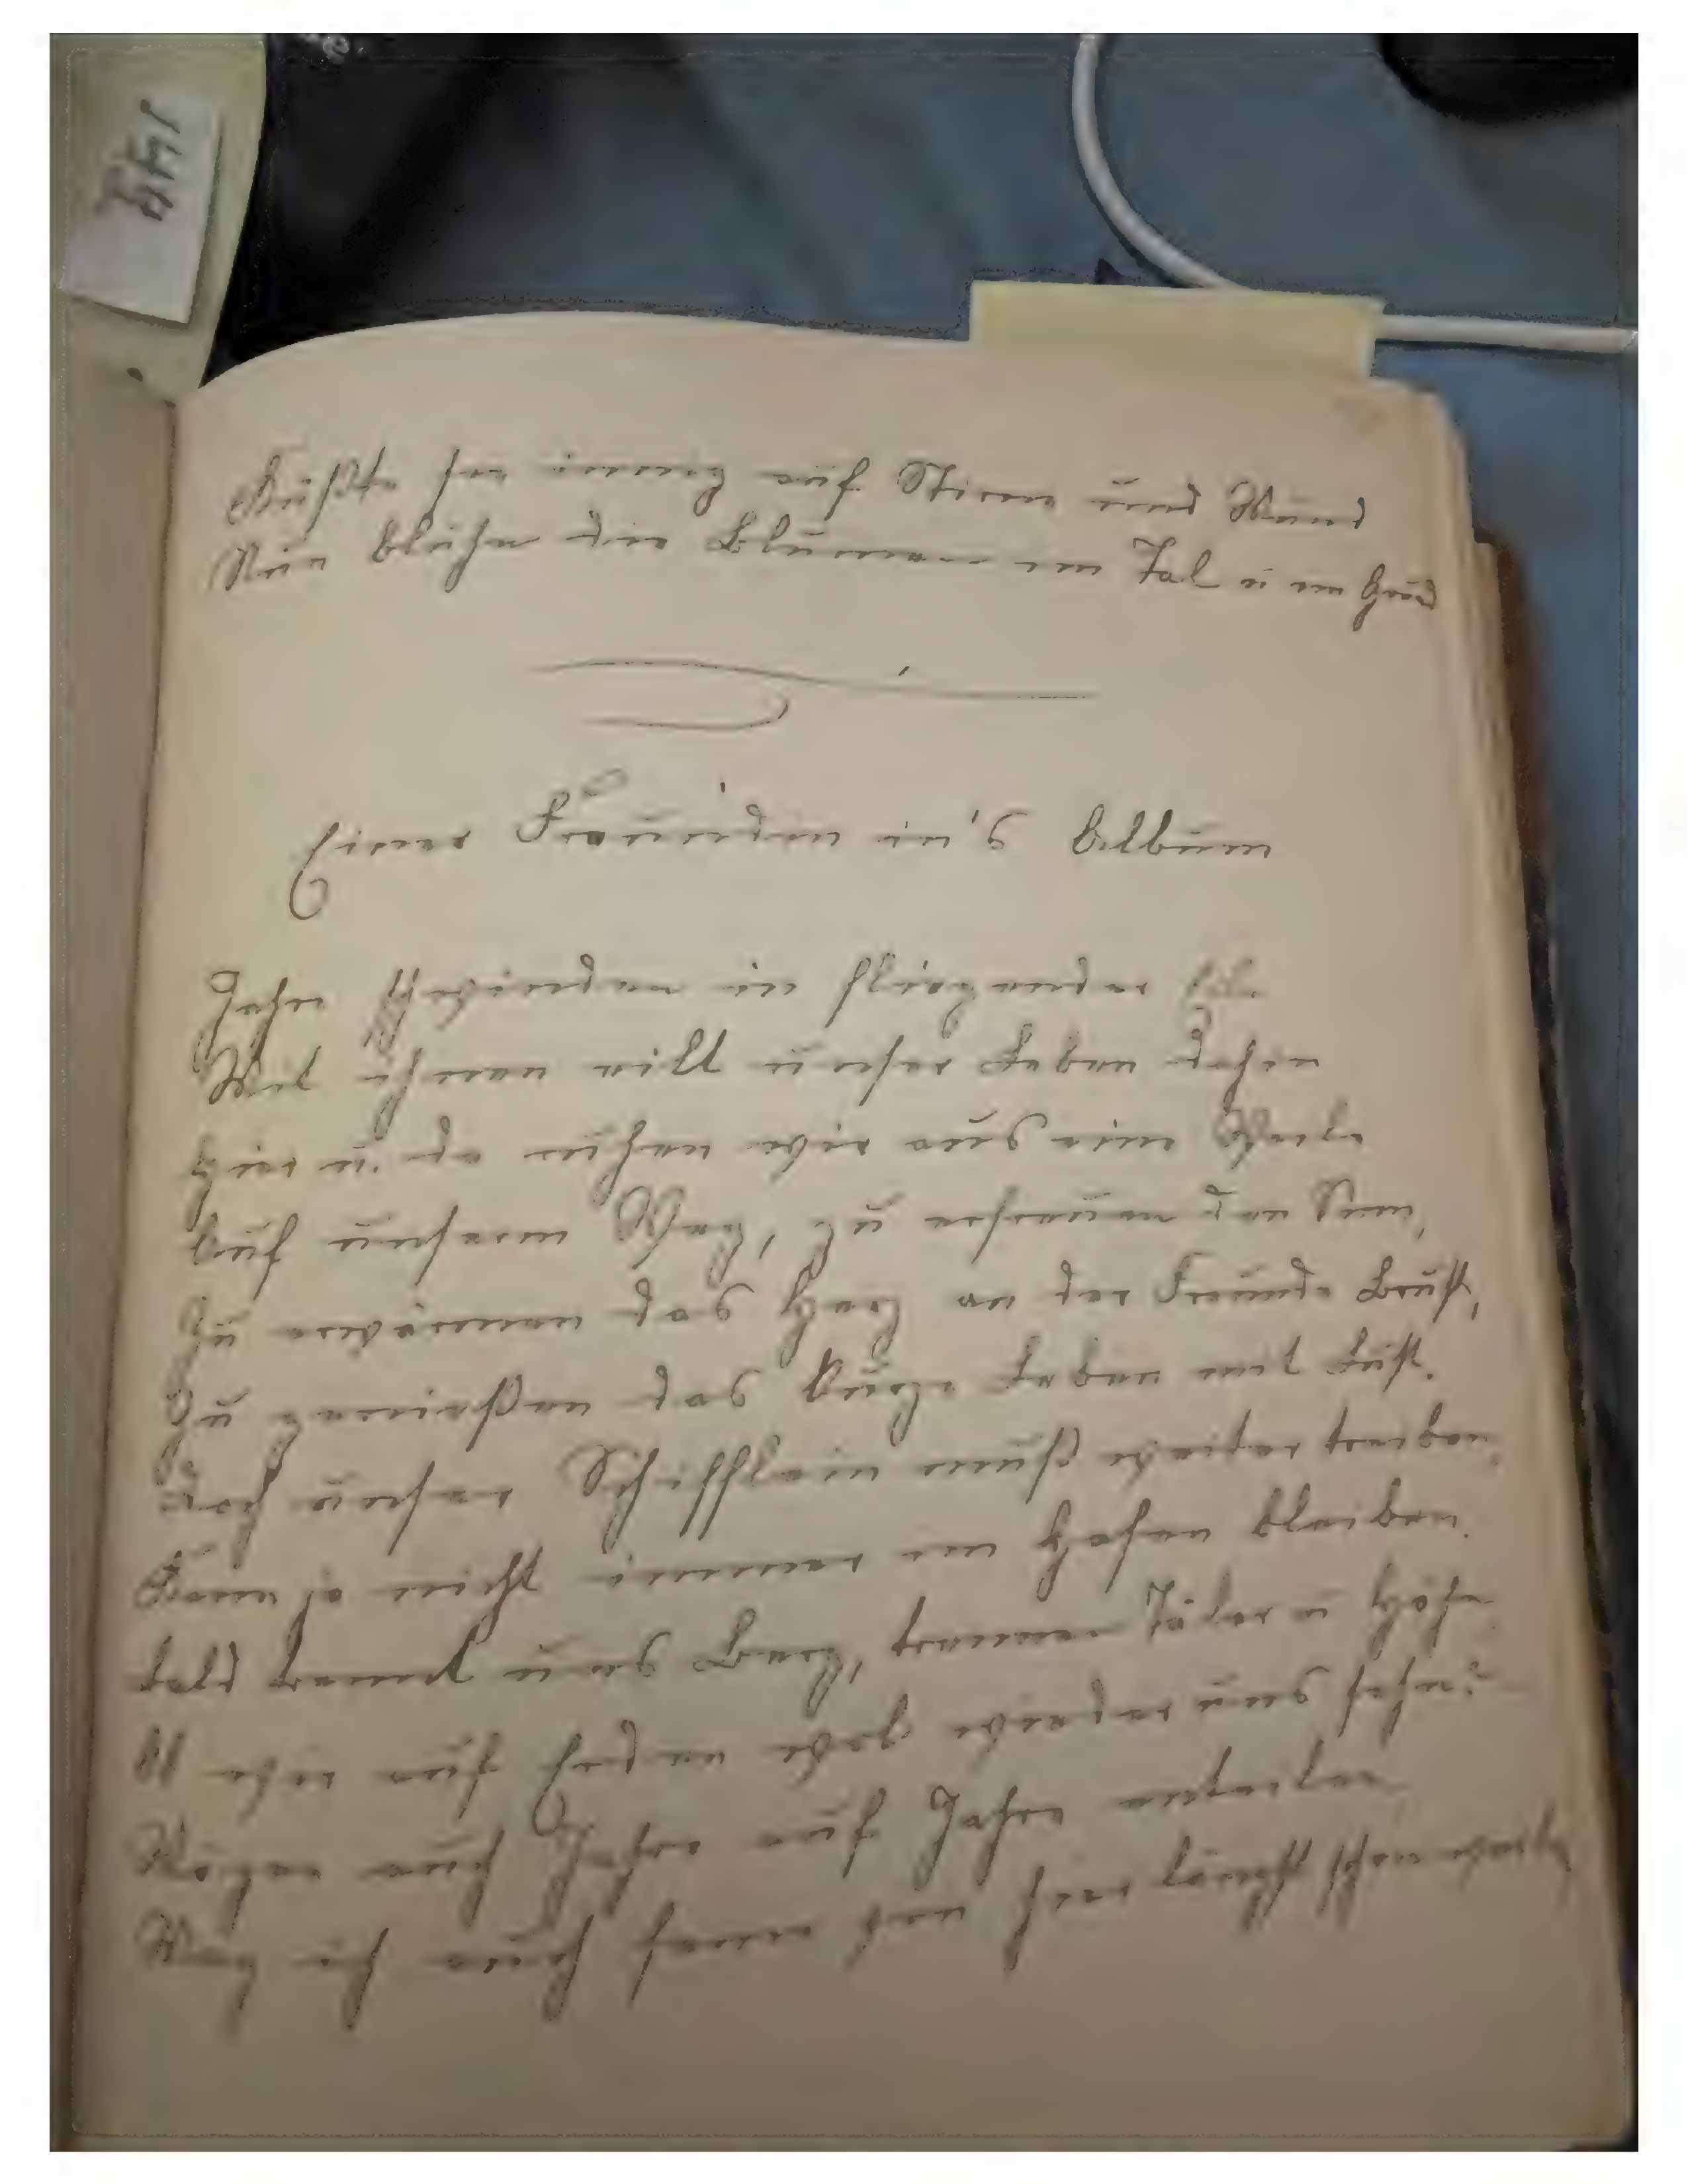 Küßte sie innig auf Stirne und Mund
Nun blühn die Blumen im Tal u im Grund
Einer Freundin in's Album
Jahre schwinden in fliegender Eile
Mit ihnen eilt unser Leben dahin
Hier u. da ruhen wir aus eine Weile
Auf unserm Weg, zu erfreuen den Sinn,
Zu erwärmen das Herz an der Freunde Brust,
Zu genießen das kurze Leben mit Lust.
Doch unser Schifflein muß weiter treiben,
Kann ja nicht immer im Hafen bleiben.
Bald trennt uns Berg, trennen Täler u Höhn
Ob wir auf Erden wol wieder uns sehn?
Mögen auch Jahre auf Jahre enteilen
Mag ich auch ferne von hier längst schon weilen